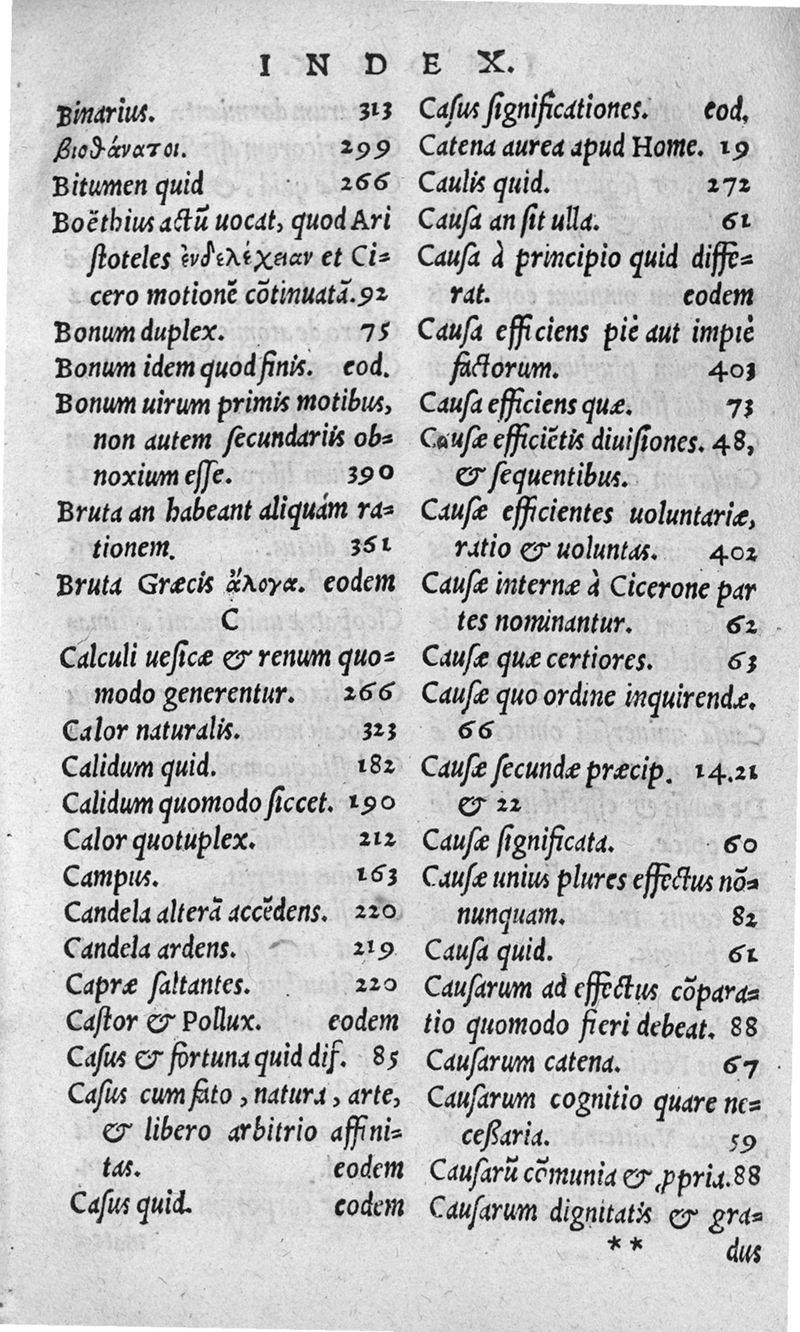 INDEX.
Binarius. 313
βιοθάνατοι. 299
Bitumen quid 266
Boëthius actũ uocat, quod Ari
ſtoteles ἐνδελέχειαν et Ci=
cero motionẽ cõtinuatã. 92
Bonum duplex. 75
Bonum idem quod finis. eod.
Bonum uirum primis motibus,
non autem ſecundariis ob=
noxium eſſe. 390
Bruta an habeant aliquám ra=
tionem. 361
Bruta Græcis ἄλογα. eodem
C
Calculi ueſicæ & renum quo=
modo generentur. 266
Calor naturalis. 323
Calidum quid. 182
Calidum quomodo ſiccet. 190
Calor quotuplex. 212
Campus. 163
Candela alterã accẽdens. 220
Candela ardens. 219
Capræ ſaltantes. 220
Caſtor & Pollux. eodem
Caſus & fortuna quid dif. 85
Caſus cum fato, natura, arte,
& libero arbitrio affini=
tas. eodem
Caſus quid. eodem
Caſus ſignificationes. eod.
Catena aurea apud Home. 19
Caulis quid. 272
Cauſa an ſit ulla. 61
Cauſa à principio quid diffe=
rat. eodem
Cauſa efficiens piè aut impiè
factorum. 403
Cauſa efficiens quæ. 73
Cauſæ efficiẽtis diuiſiones. 48,
& ſequentibus.
Cauſæ efficientes uoluntariæ,
ratio & uoluntas. 402
Cauſæ internæ à Cicerone par
tes nominantur. 62
Cauſæ quæ certiores. 63
Cauſæ quo ordine inquirendæ.
66
Cauſæ ſecundæ præcip. 14.21
& 22
Cauſæ ſignificata. 60
Cauſæ unius plures effectus nõ=
nunquam. 82
Cauſa quid. 61
Cauſarum ad effectus cõpara=
tio quomodo fieri debeat. 88
Cauſarum catena. 67
Cauſarum cognitio quare ne=
ceßaria. 59
Cauſarũ cõmunia & ꝓpria. 88
Cauſarum dignitatis & gra=
** dus